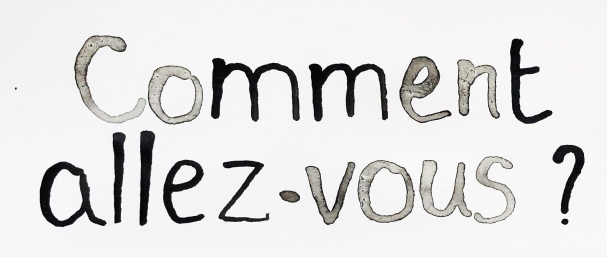 Comment
allez-vous ?